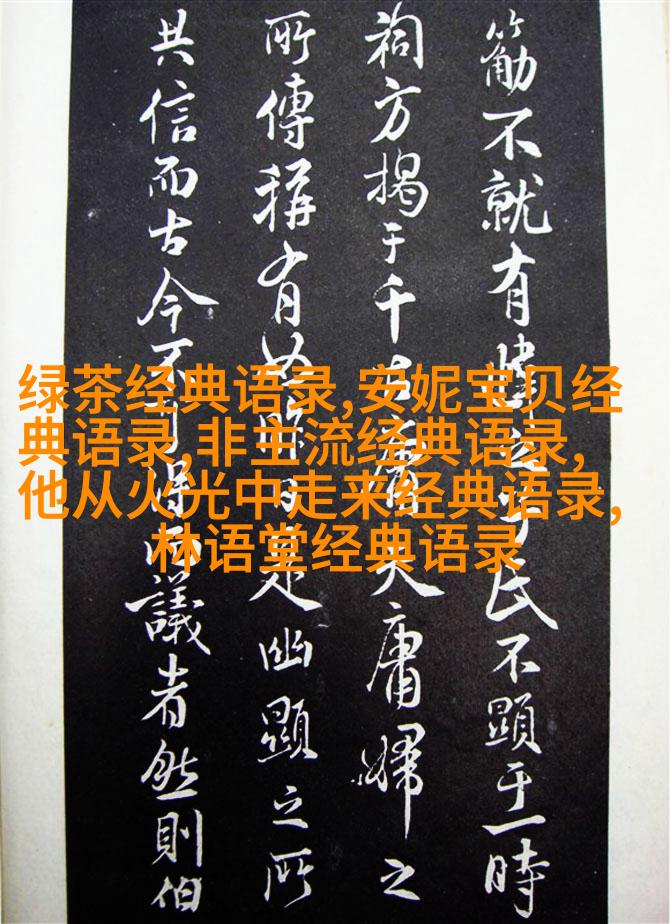 不就有
民不顯于一時
祠方揭于千古庸夫庸婦之
所傳稱有如昨日是幽顯之所
共信而古今不可得而議者然則伯
绿茶经典语录,安妮宝贝经
典语录,非主流经典语录,
他从火光中走来经典语录,
林语堂经典语录